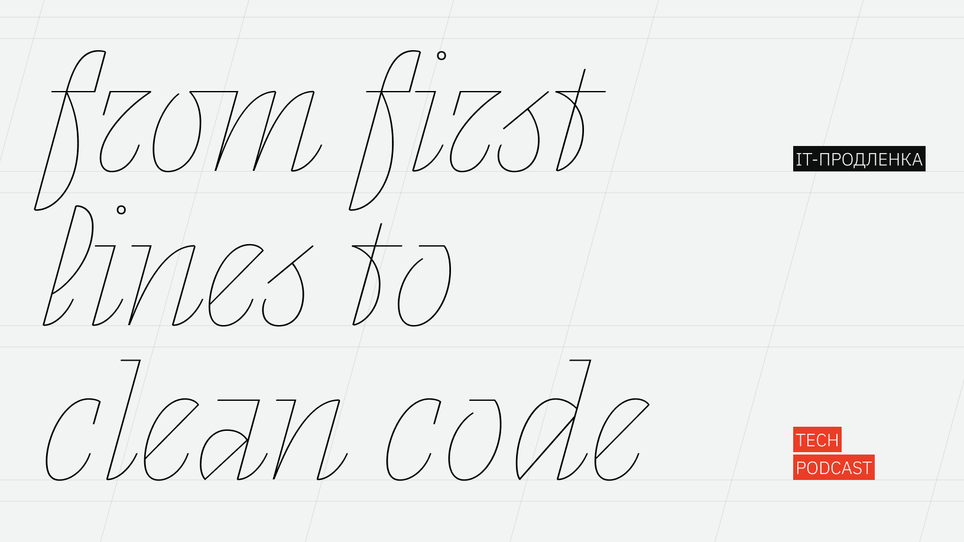 from first
lines to
clean code
IT-ПРОДЛЕНКА
TECH
PODCAST